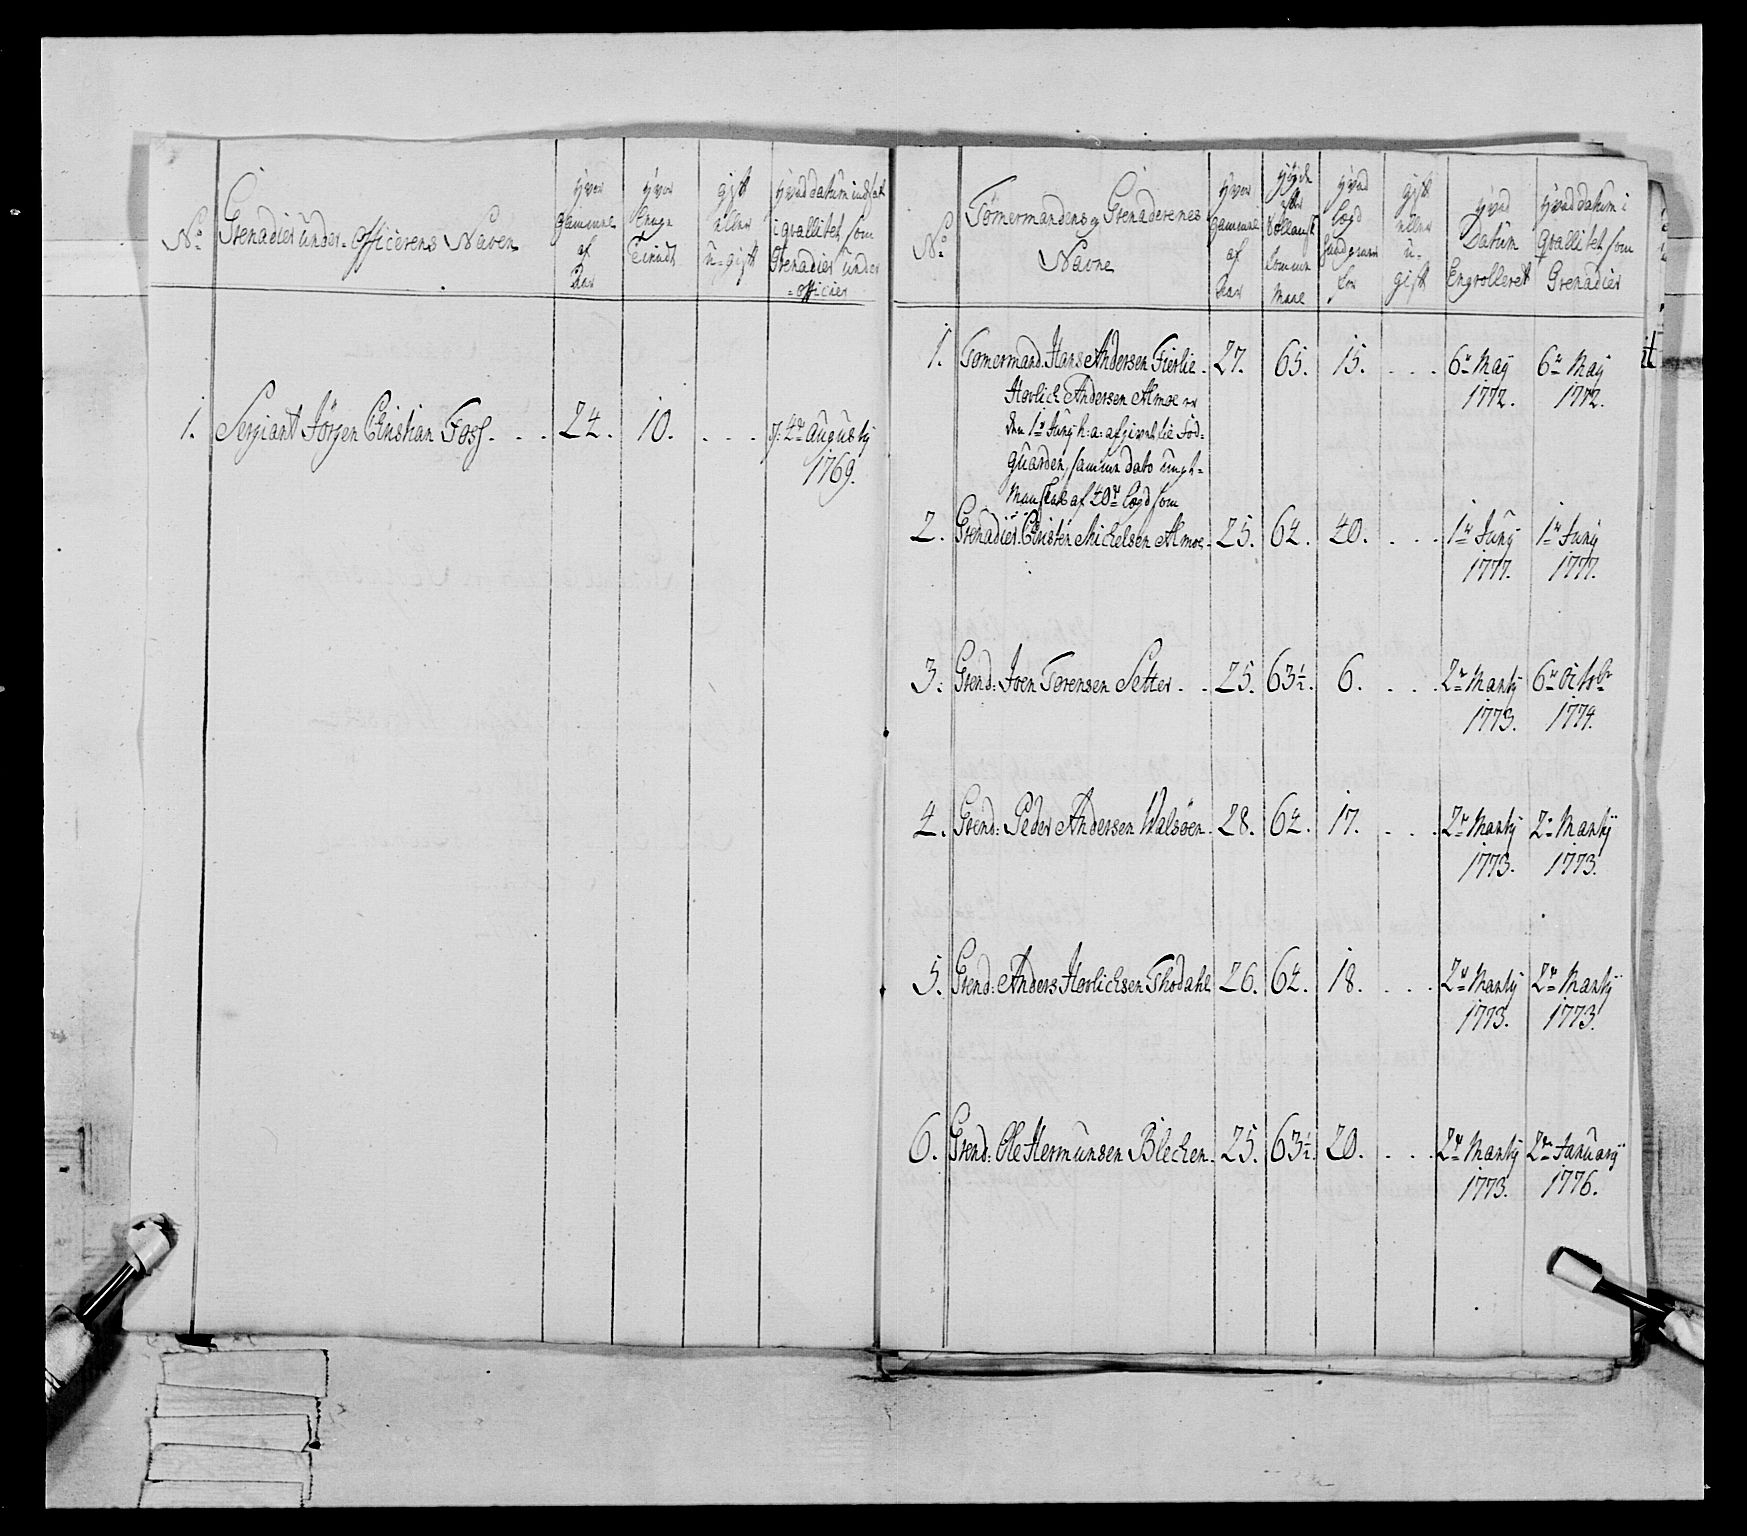 No
Grenadier under-officerens Naven
hvor
gammel
af
Aar
hvor
lenge
tient
gift
eller
u-gift
hvad datum indsat
i qvallitet som
Grenadier under
-officier
1. Sergiant Jörgen Christian Foss. . . 24. 10. . . . d: 4de Augusty
1769.
No
Tömermandens og Grenaderenes
Navne
hvor
gammel
af
Aar
höyde
efter
Hollansk
Tomme
Maal
hvad
Lægd
hand giver
for
gift
eller
u-
gift
hvad
Datum
Engrolleret
hvad datum i
qvallitet som
Grenadier
1. Tømermand. Hans Andersen Fierlie. 27. 65. 15. . . . 6te May 6te May
1772. 1772.
Hovlich Andersen Almoe er
den 1te Juny h: a: afgivet lie
guarden, samme dato
Manskab af 40de Lægd som
2. Grenadier. Christen Michelsen Almoe. 25. 64. 40. . . . 1te Juny 1te Juny
1777. 1777.
3. Grend: Joen Torensen Setter. . 25. 63½. 6. . . . 2de Marty 6te Octobr
1773. 1774.
4. Grend: Peder Andersen Walsöen. 28. 64. 17. . . . 2de Marty 2de Marty
1773. 1773.
5. Grend: Anders Hovlichsen Thodahl 26. 64. 18. . . . 2de Marty 2de Marty
1773. 1773.
6. Grend: Ole Hermundsen Blechen. 25. 63½. 20. . . . 2de Marty 2de January
1773. 1776.